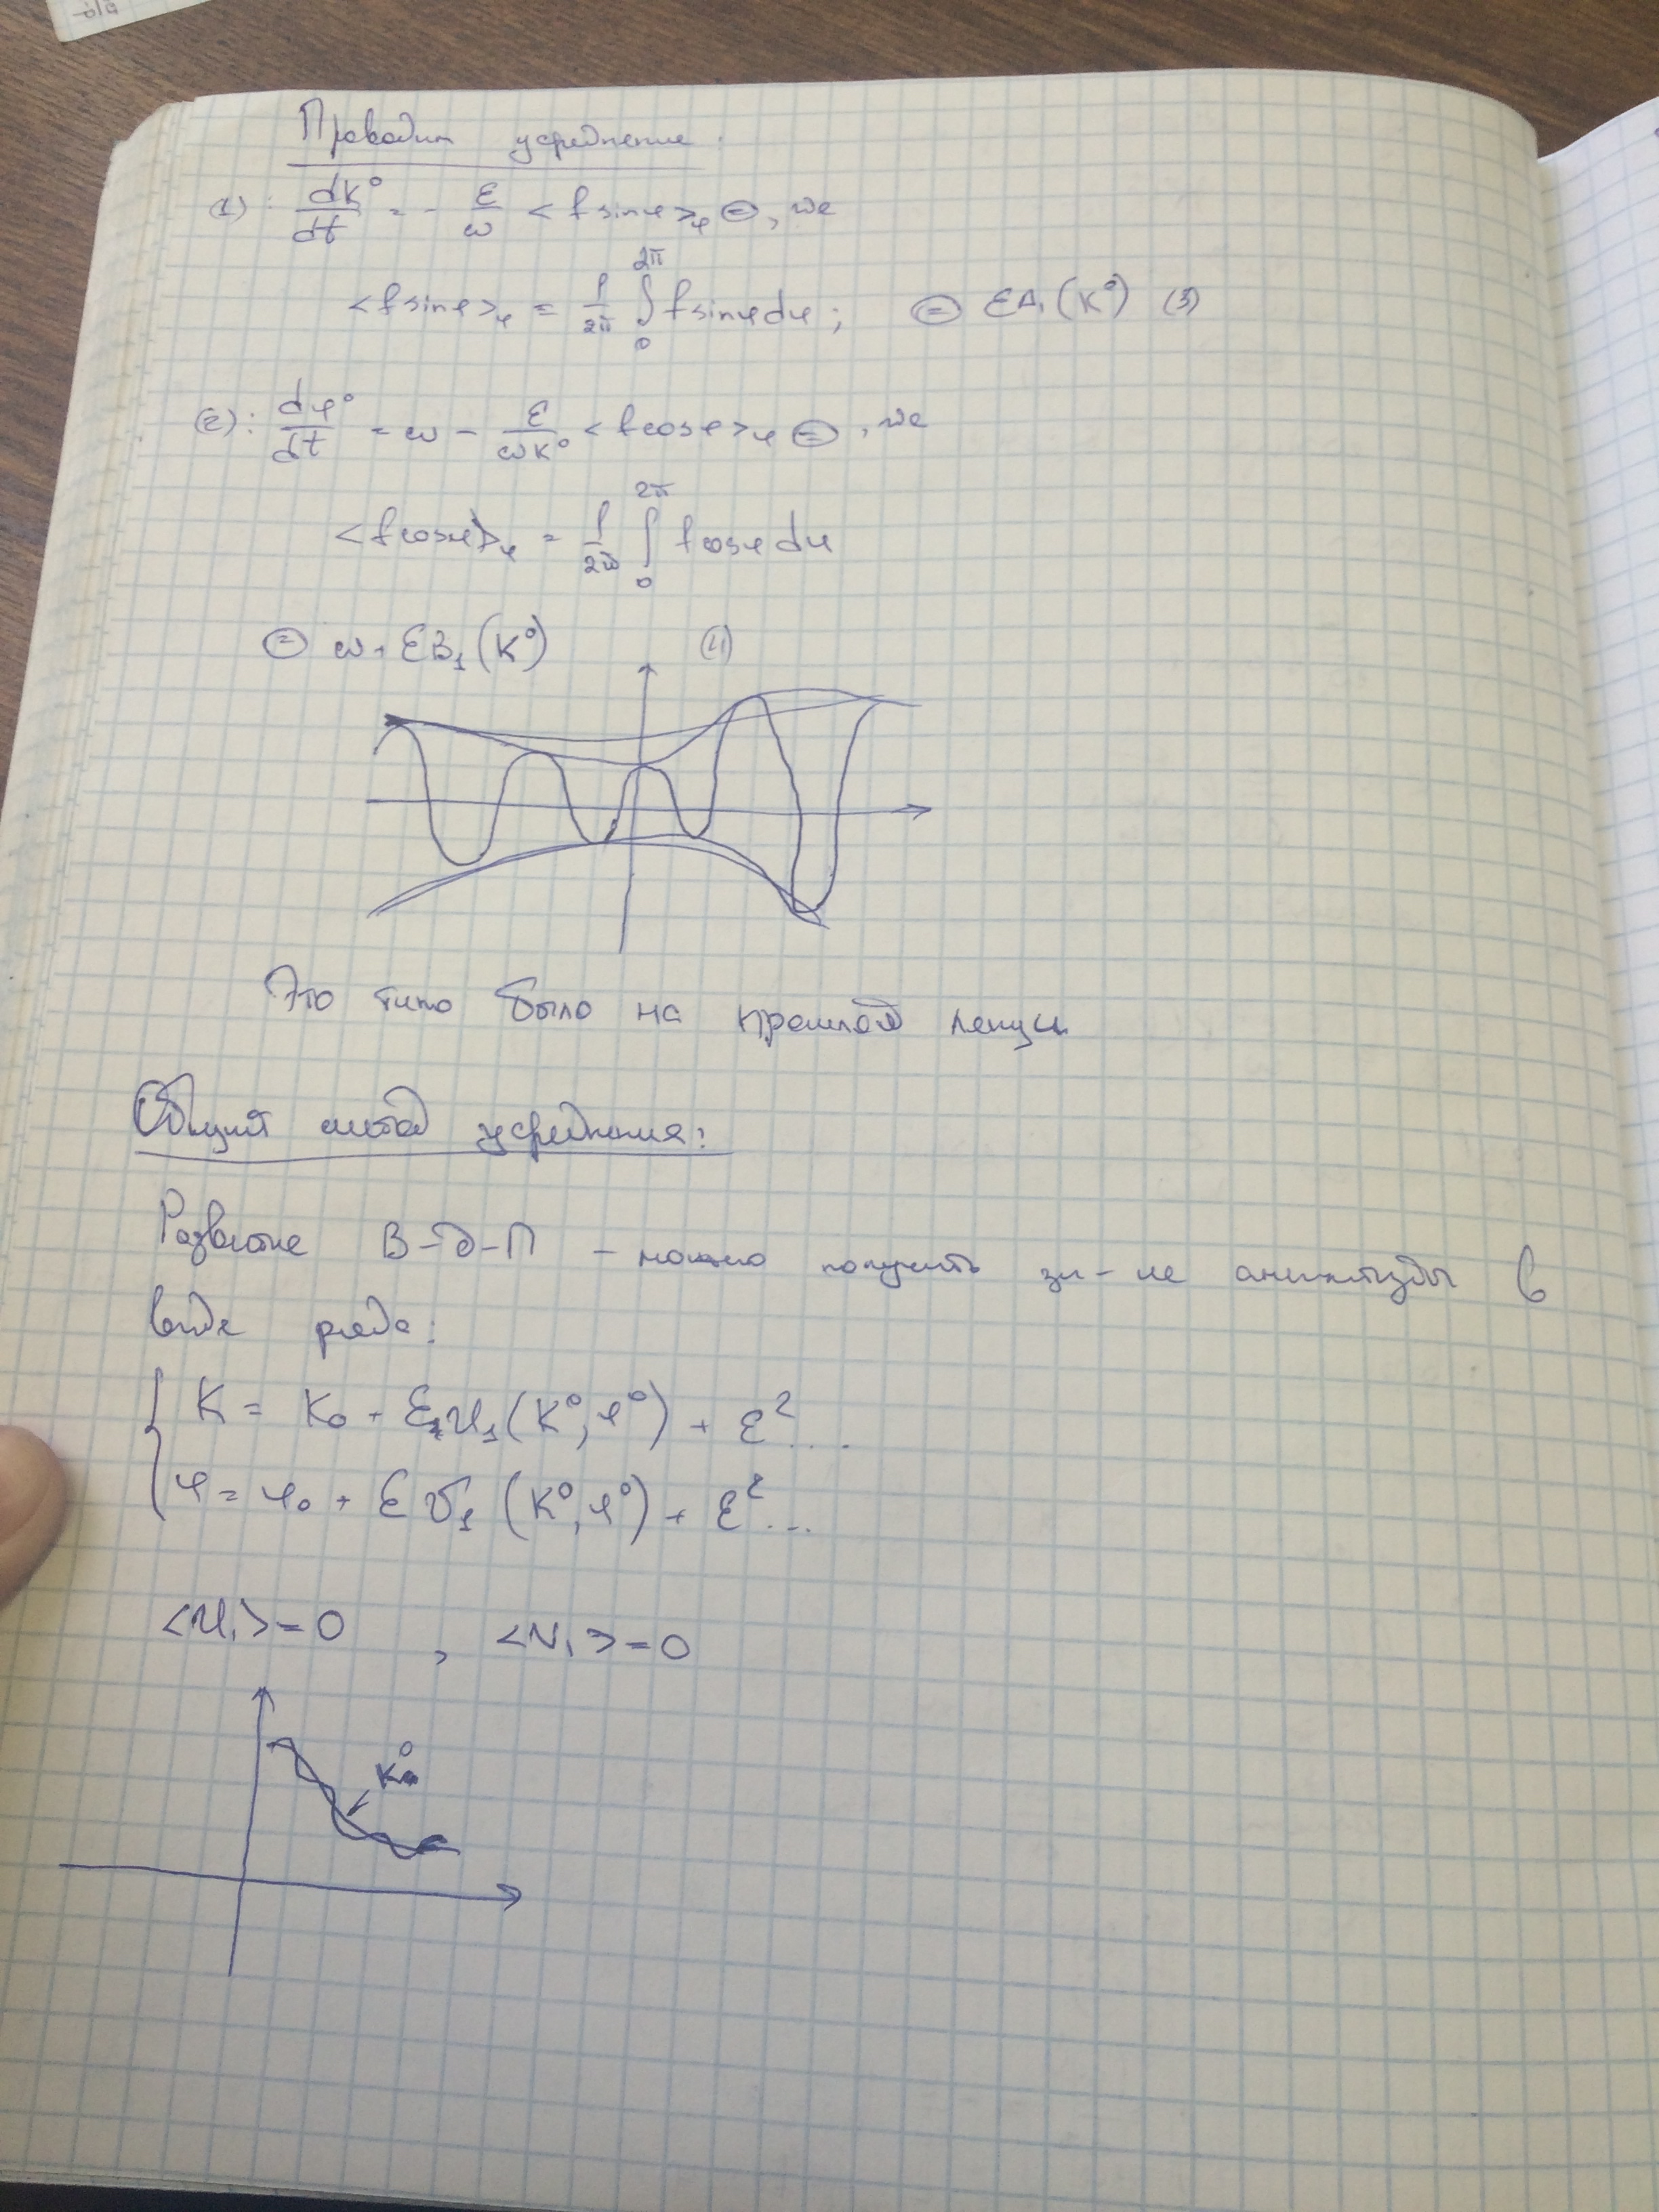 Проводим усреднение:
(1): dK°/dt = - ε/ω <f sinφ>_φ ⊜, где
<f sinφ>_φ = 1/2π ∫₀^2π f sinφ dφ; ⊜ εA₁(K°) (3)
(2): dφ°/dt = ω - ε/ωK° <f cosφ>_φ ⊜, где
<f cosφ>_φ = 1/2π ∫₀^2π f cosφ dφ
⊜ ω + εB₁(K°) (4)
Это типо было на прошлой лекции
Общий метод усреднения:
Развитие В-д-П - можно получить зн-ие амплитуды в
виде ряда:
K = K₀ + ε u₁(K°, φ°) + ε² ...
φ = φ₀ + ε v₁(K°, φ°) + ε² ...
<u₁> = 0 , <v₁> = 0
K°